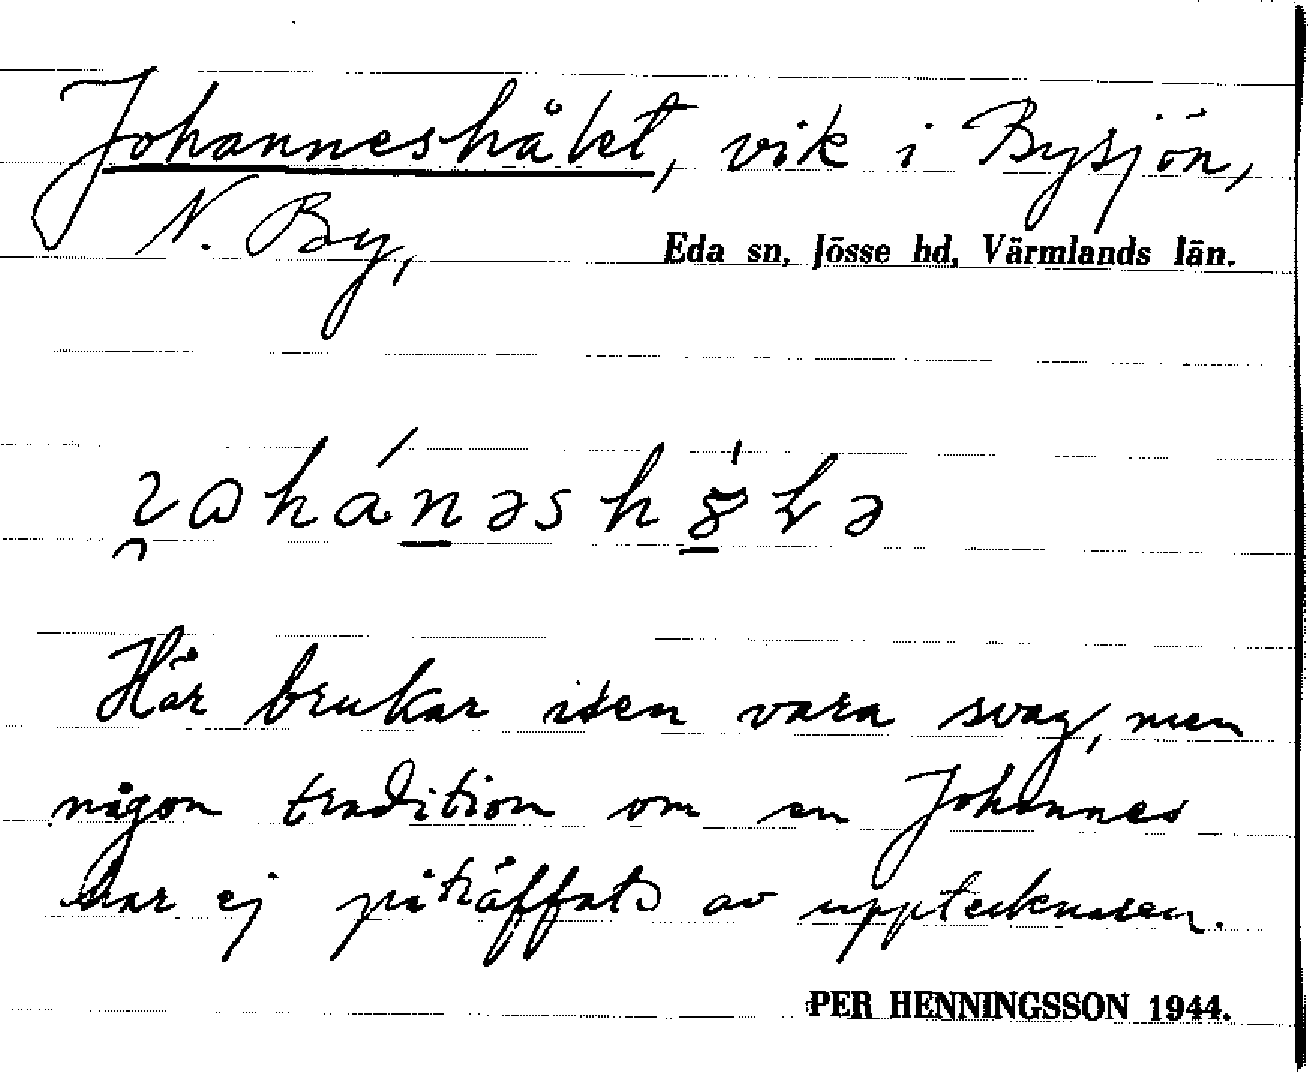 Johanneshålet, vik i Bysjön,
N. By,
Eda sn, Jösse hd, Värmlands län.
Här brukar isen vara svag, men
någon tradition om en Johannes
har ej påträffats av upptecknaren.
PER HENNINGSSON 1944.